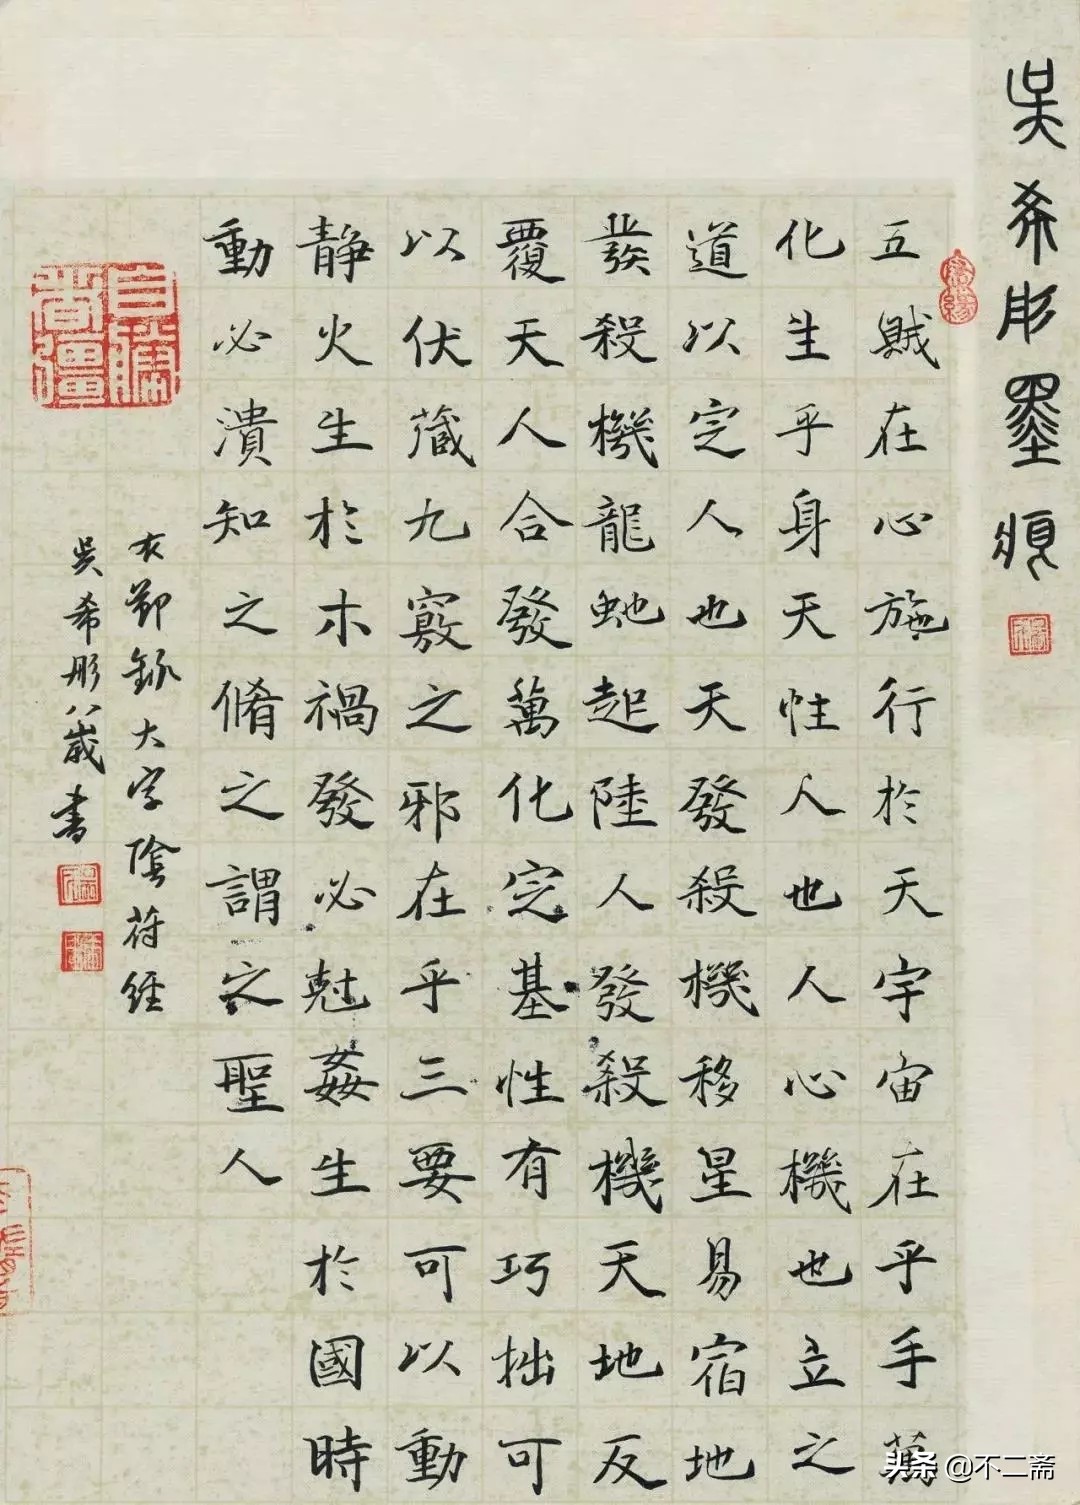 吴希彤墨痕
五賊在心施行於天宇宙在乎手萬
化生乎身天性人也人心機也立之
道以定人也天發殺機移星易宿地
發殺機龍虵起陸人發殺機天地反
覆天人合發萬化定基性有巧拙可
以伏藏九竅之邪在乎三要可以動
静火生於木禍發必尅姦生於國時
動必潰知之脩之謂之聖人
大字陰符經
吴希彤八歲書
自勝者彊
头条 @不二斋